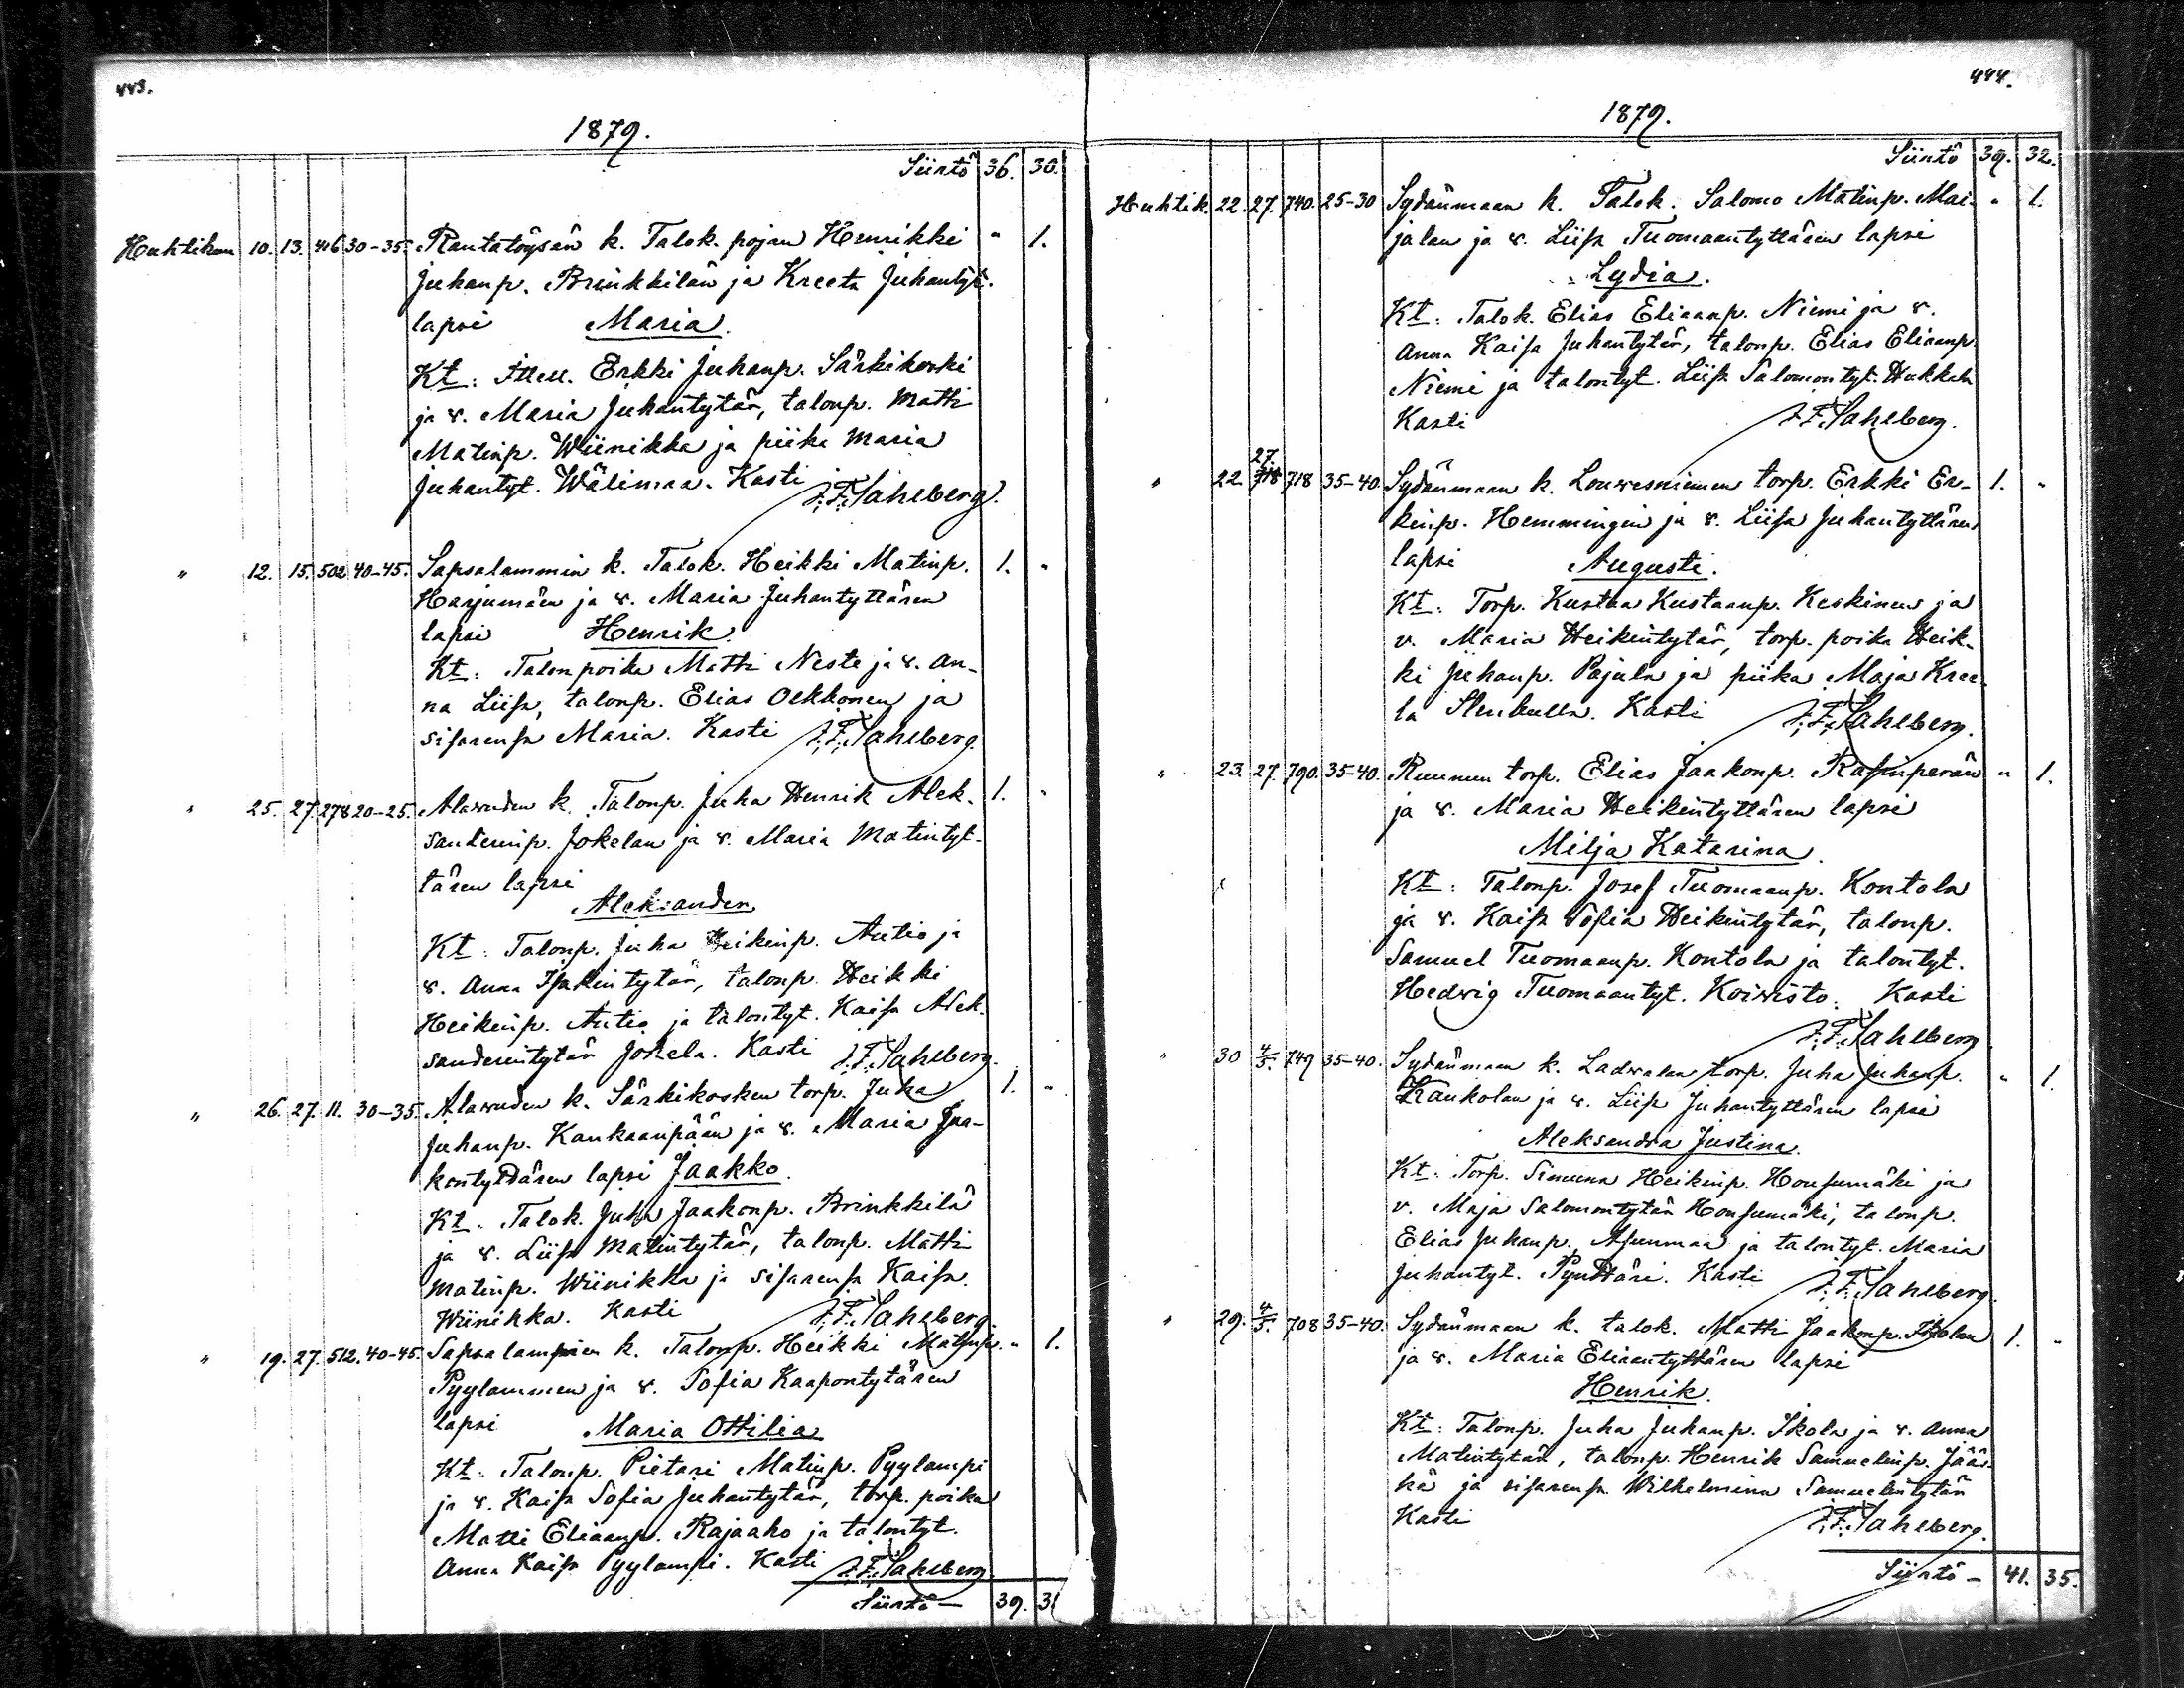 443.
1879.
Siirtö 36. 30.
Huhtikuu 10. 13. 416 30-35. Rantatöysän k. Talok. pojan Henrikki " 1.
Juhanp. Brinkkilän ja Kreeta Juhantyt.
lapsi Maria.
Kt: Erkki Juhanp. Särkikoski
ja v. Maria Juhantytär, talonp. Matti
Matinp. Wiinikka ja piika Maria
Juhantyt. Wälimaa. Kasti J.F. Sahlberg.
" 12. 15. 502 40-45. Sapsalammin k. Talok. Heikki Matinp. 1. "
Harjumäen ja v. Maria Juhantyttären
lapsi Henrik.
Kt: Talonpoika Matti Neste ja v. An-
na Liisa, talonp. Elias Olkkonen ja
sisarensa Maria. Kasti J.F. Sahlberg.
" 25. 27. 278 20-25. Alawuden k. Talonp. Juha Henrik Alek- 1. "
santerinp. Jokelan ja v. Maria Matintyt-
tären lapsi
Aleksander
Kt: Talonp. Juha Heikinp. Autio ja
v. Anna Isakintytär, talonp. Heikki
Heikinp. Autio ja talontyt. Kaisa Alek-
sanderintytär Jokela. Kasti J.F. Sahlberg.
" 26. 27. 11. 30-35. Alawuden k. Särkikosken torp. Juha 1. "
Juhanp. Kankaanpään ja v. Maria Jaa-
kontyttären lapsi Jaakko.
Kt. Talok. Juha Jaakonp. Brinkkilä
ja v. Liisa Matintytär, talonp. Matti
Matinp. Wiinikka ja sisarensa Kaisa
Wiinikka. Kasti J.F. Sahlberg.
" 19. 27. 512. 40-45. Sapsalampien k. Talonp. Heikki Matinp. " 1.
Pyylammen ja v. Sofia Kaapontytären
lapsi Maria Ottilia
Kt: Talonp. Pietari Matinp. Pyylampi
ja v. Kaisa Sofia Juhantytär, torp. poika
Matti Eliaanp. Rajaaho ja talontyt.
Anna Kaisa Pyylampi. Kasti J.F. Sahlberg
Siirtö - 39. 31
444.
1879.
Siirtö 39. 32.
Huhtik. 22. 27. 740. 25-30 Sydänmaan k. Talok. Salomo Matinp. Mai- " 1.
jalan ja v. Liisa Tuomaantyttären lapsi
Lydia.
Kt: Talok. Elias Eliaanp. Niemi ja v.
Anna Kaisa Juhantytär, talonp. Elias Eliaanp.
Niemi ja talontyt. Liisa Salomontyt. Hakkola
Kasti J.F. Sahlberg.
27.
" 22. 718 718 35-40. Sydänmaan k. Louwesniemen torp. Erkki Er- 1. "
kinp. Hemmingin ja v. Liisa Juhantyttären
lapsi Augusti.
Kt: Torp. Kustaa Kustaanp. Keskinen ja
v. Maria Heikintytär, torp. poika Heik-
ki Juhanp. Pajula ja piika Maja Kree-
ta Kasti J.F. Sahlberg.
" 23. 27. 790. 35-40. Ruunun torp. Elias Jaakonp. Rasinperän " 1.
ja v. Maria Heikintyttären lapsi
Milja Katarina.
Kt: Talonp. Josef Tuomaanp. Kontola
ja v. Kaisa Sofia Heikintytär, talonp.
Samuel Tuomaanp. Kontola ja talontyt.
Hedwig Tuomaantyt. Koiwisto. Kasti
J.F. Sahlberg
" 30 4/5. 749 35-40. Sydänmaan k. Ladwalan torp. Juha Juhanp. " 1.
Kaukolan ja v. Liisa Juhantyttären lapsi
Aleksandra Justina.
Kt: Torp. Simuna Heikinp. Honsumäki ja
v. Maja Salomontytär Honsumäki, talonp.
Elias Juhanp. Asunmaa ja talontyt. Maria
Juhantyt. Pynttäri. Kasti J.F. Sahlberg.
" 29. 4/5. 708 35-40. Sydänmaan k. talok. Matti Jaakonp. Ikolan 1. "
ja v. Maria Eliaantyttären lapsi
Henrik.
Kt: Talonp. Juha Juhanp. Ikola ja v. Anna
Matintytär, talonp. Henrik Samuelinp. Jääs-
kä ja sisarensa Wilhelmina Samuelintytär
Kasti J.F. Sahlberg.
Siirtö - 41. 35.